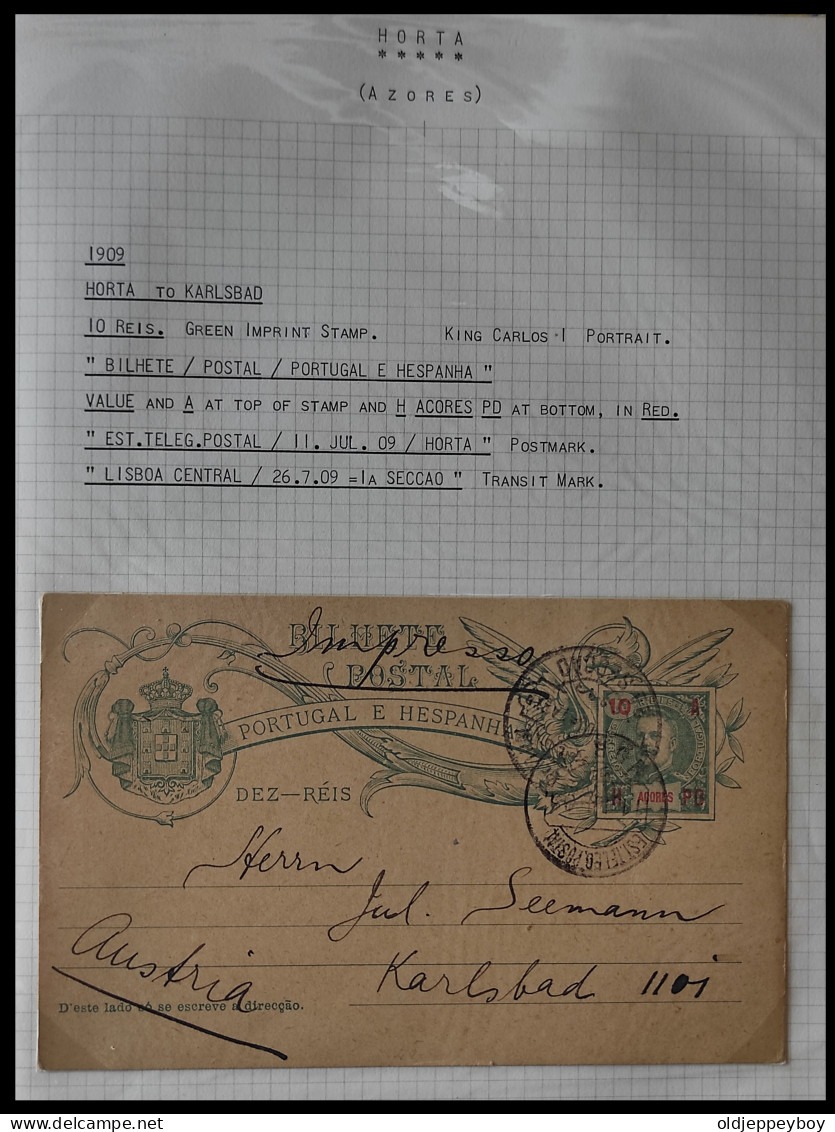 HORTA
*****
(AZORES)
1909
HORTA TO KARLSBAD
10 REIS. GREEN IMPRINT STAMP. KING CARLOS I PORTRAIT.
" BILHETE / POSTAL / PORTUGAL E HESPANHA "
VALUE AND A AT TOP OF STAMP AND H ACORES PD AT BOTTOM, IN RED.
" EST.TELEG.POSTAL / 11. JUL. 09 / HORTA " POSTMARK.
" LISBOA CENTRAL / 26.7.09 =1A SECCAO " TRANSIT MARK.
BILHETE
Impresso
POSTAL
PORTUGAL E HESPANHA
10 A
H. AÇORES PD
DEZ—RÉIS
EST.TELEG.POSTAL
Herrn
Jul. Seemann
Austria
Karlsbad 1101
D'este lado só se escreve a direcção.
delcampe.net
oldjeppeyboy